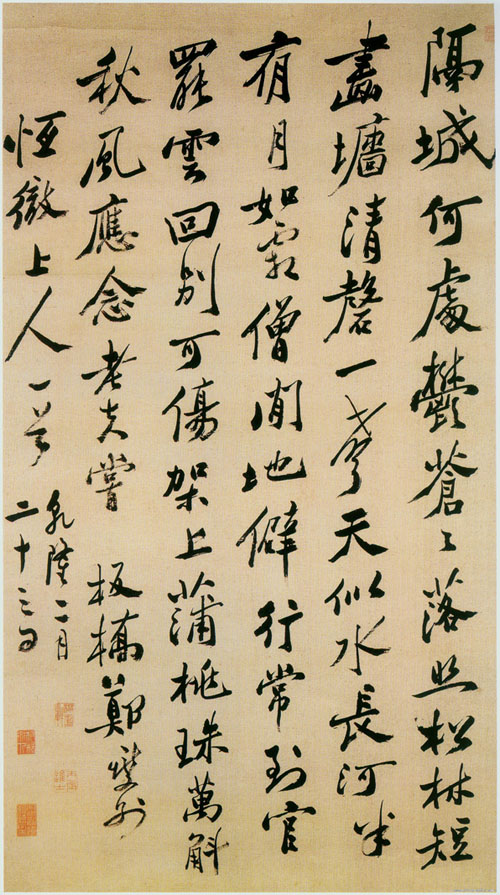 隔城何處鬱蒼〻落照松林短
畫墻清磬一聲天似水長河半
有月如霜僧閒地僻行常到官
罷雲回別可傷架上蒲桃珠萬斛
秋風應念老夫嘗 板橋鄭燮
恆徹上人一笑
乾隆二月
二十三日